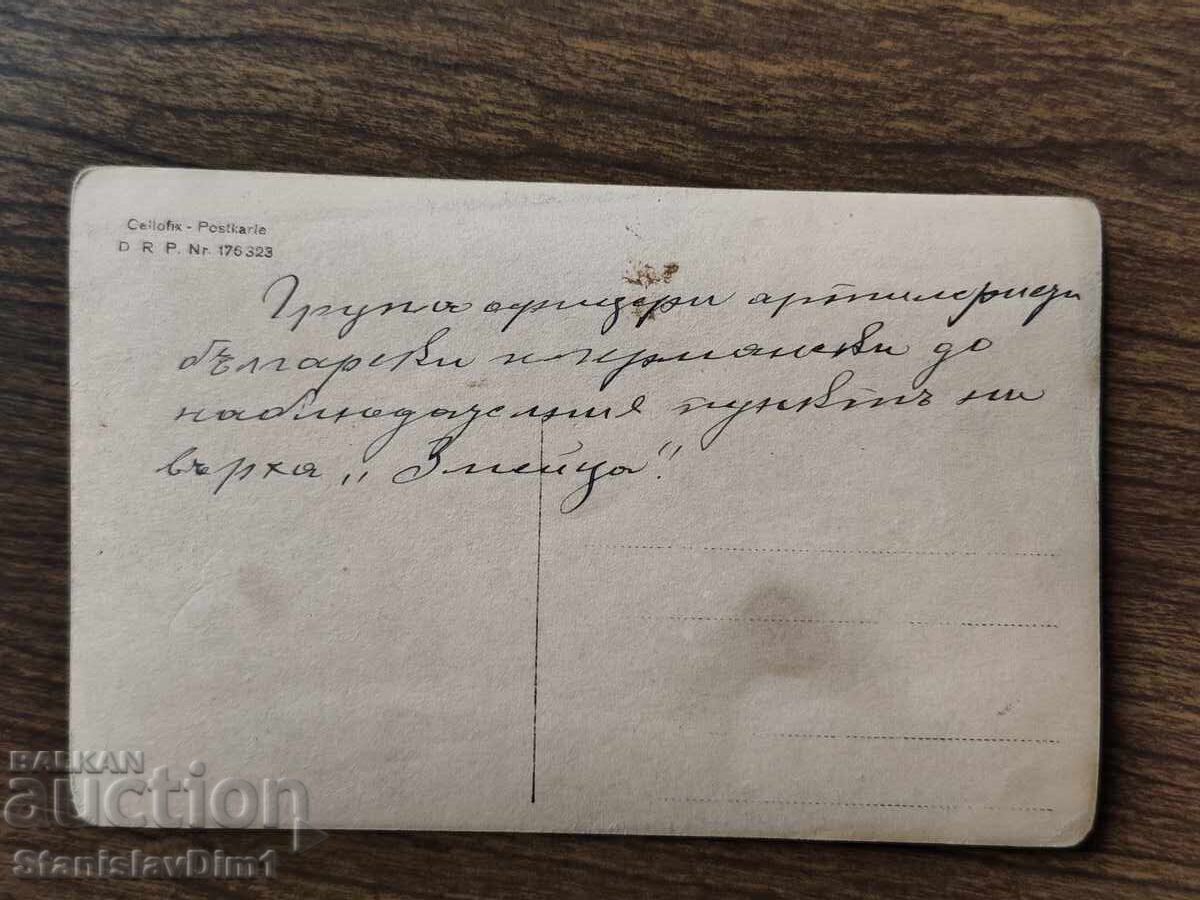 Cellofix - Postkarte
D. R. P. Nr. 176323
Група офицери артилеристи
български и германски до
наблюдателния пунктъ на
върха „Змейца".
BALKAN
auction
StanislavDim1